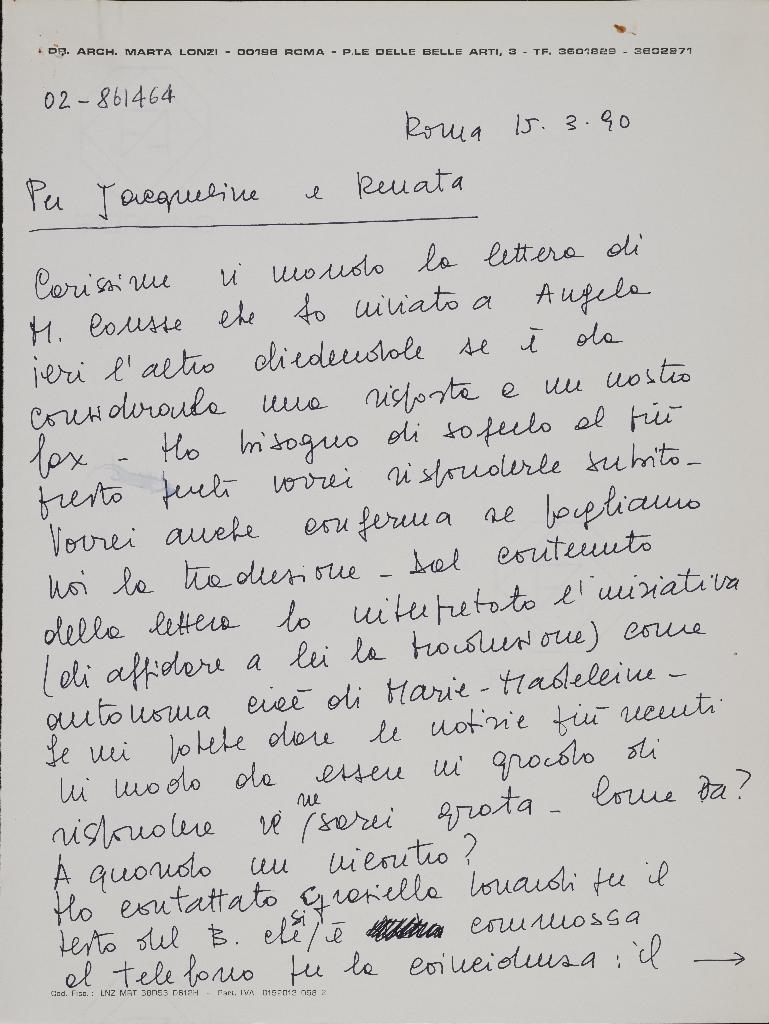 DR. ARCH. MARTA LONZI - 00196 ROMA - P.LE DELLE BELLE ARTI, 3 - TF. 3601829 - 3602971
02-861464
Roma 15.3.90
Per Jacqueline e Renata
Carissime vi mando la lettera di
M. Cousse che ho inviato a Angela
ieri l'altro chiedendole se è da
considerarla una risposta a un nostro
fax - Ho bisogno di saperlo al più
presto perché vorrei risponderle subito -
Vorrei anche conferma se paghiamo
noi la traduzione - Dal contenuto
della lettera ho interpretato l'iniziativa
(di affidare a lei la traduzione) come
autonoma cioè di Marie-Madeleine -
Se mi potete dare le notizie più recenti
in modo da essere in grado di
rispondere ve ne sarei grata - Come va?
A quando un incontro?
Ho contattato Graziella Lonardi per il
testo del B. che si è commossa
al telefono per la coincidenza: il →
Cod. Fisc.: LNZ MRT 38D53 D612H - Part. IVA 0152012 058 2